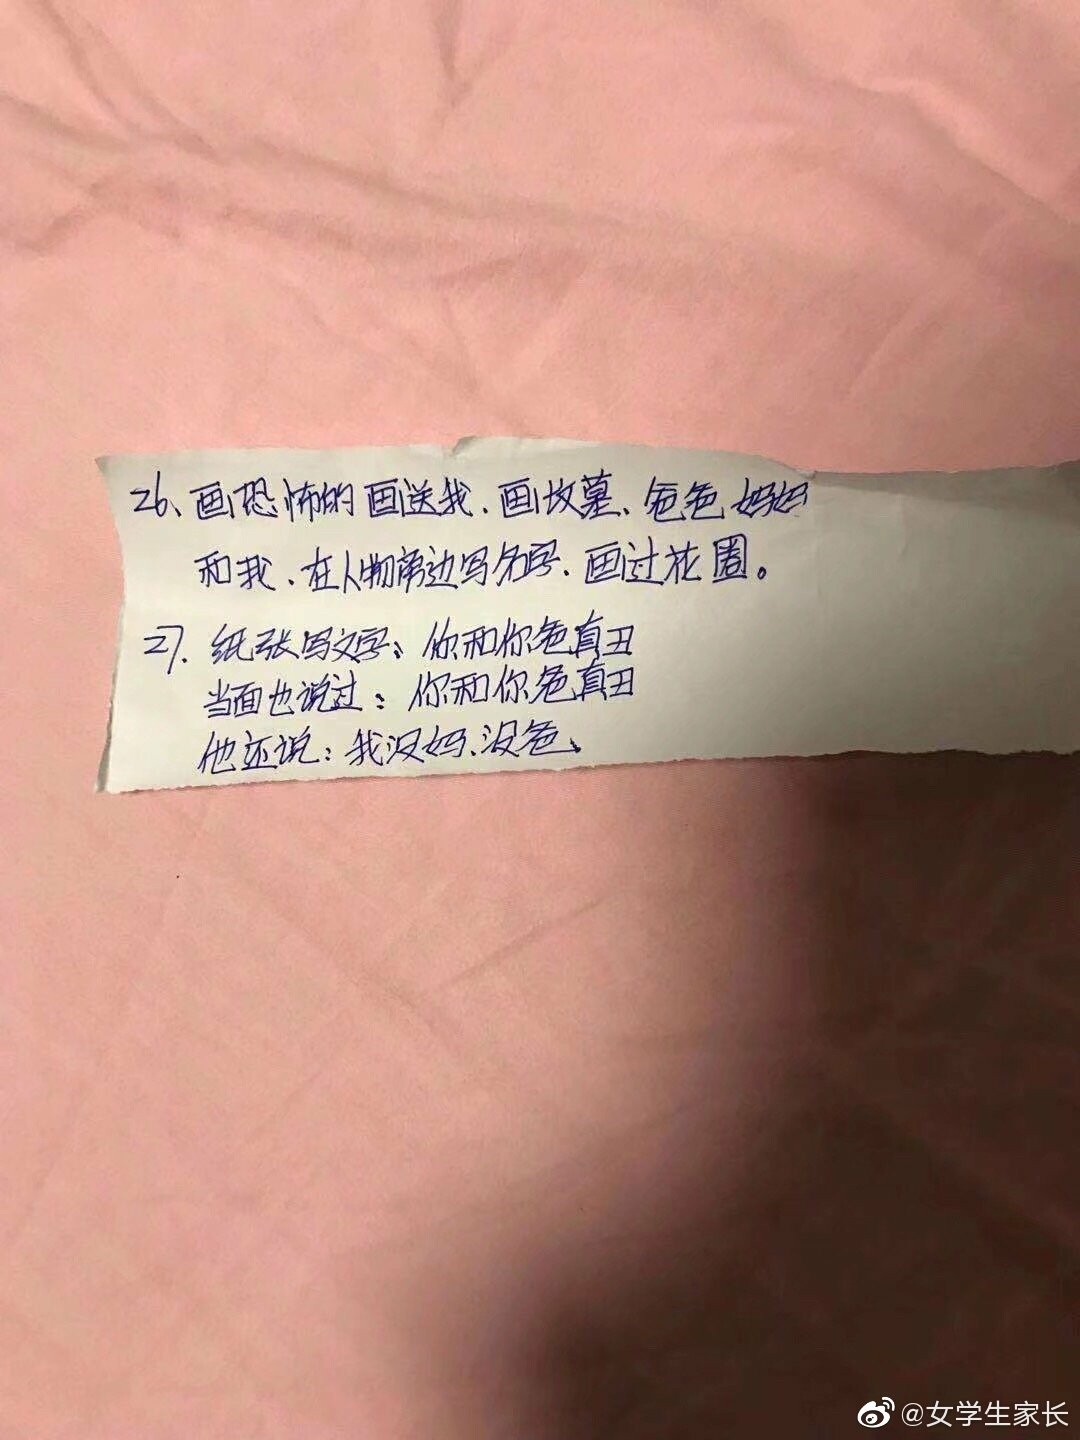 26、画恐怖的画送我、画坟墓、爸爸妈妈
和我、在人物旁边写名字、画过花圈。
27. 纸张写文字：你和你爸真丑
当面也说过：你和你爸真丑
他还说：我没妈、没爸、
@女学生家长